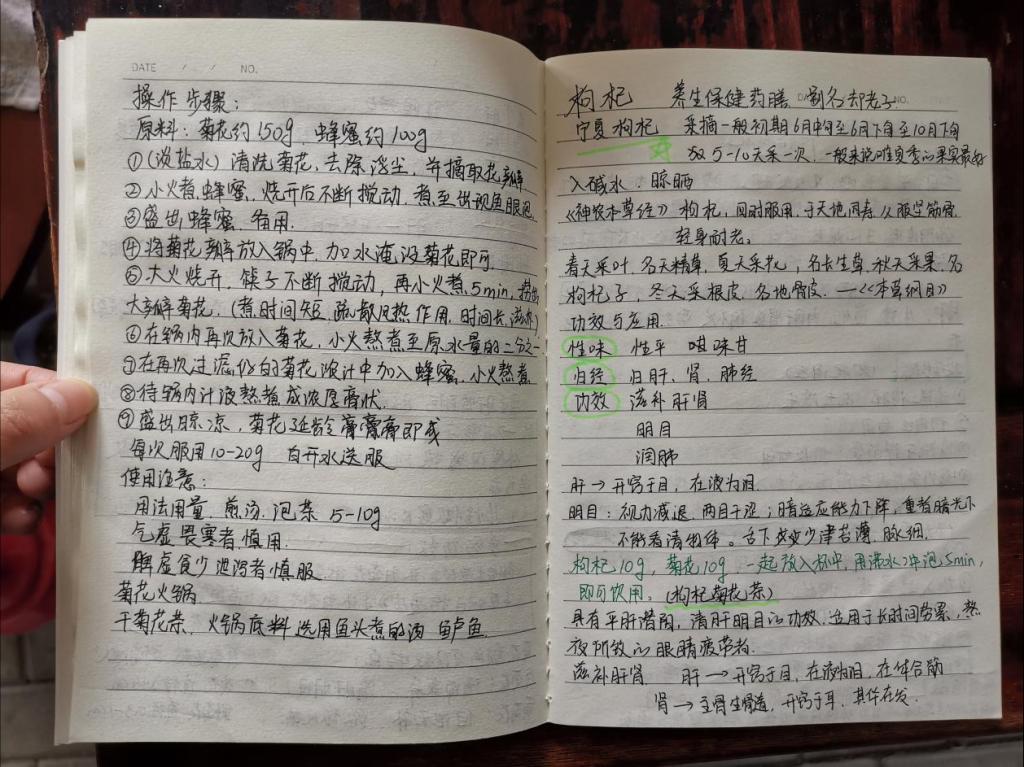 DATE / / NO.
操作步骤:
原料: 菊花约150g 蜂蜜约100g
①(淡盐水) 清洗菊花, 去除浮尘, 并摘取花瓣
②小火煮蜂蜜, 烧开后不断搅动, 煮至出现鱼眼泡.
③盛出蜂蜜 备用.
④将菊花瓣放入锅中, 加水淹没菊花即可.
⑤大火烧开, 筷子不断搅动, 再小火煮5min, 捞出
大瓣菊花. (煮时间短, 疏散风热作用, 时间长, 滋养)
⑥在锅内再次放入菊花, 小火熬煮至原水量的二分之一
⑦在再次过滤后的菊花浓汁中加入蜂蜜, 小火熬煮
⑧待锅内汁液熬煮成浓厚膏状.
⑨盛出晾凉, 菊花延龄膏即成
每次服用10-20g 白开水送服
使用注意:
用法用量 煎汤, 泡茶 5-10g
气虚畏寒者慎用.
脾虚食少泄泻者慎服
菊花火锅
干菊花茶、火锅底料 选用鱼头煮的汤 鲈鱼
枸杞 养生保健药膳 别名却老子 NO.
宁夏枸杞 采摘一般初期6月中旬至6月下旬至10月下旬
每5-10天采一次, 一般来说唯夏季的果实最好
入碱水, 晾晒
《神农本草经》枸杞, 同时服用, 与天地同寿 久服坚筋骨
轻身耐老.
春天采叶, 名天精草, 夏天采花, 名长生草, 秋天采果, 名
枸杞子, 冬天采根皮, 名地骨皮. —《本草纲目》
功效与应用.
性味 性平 味甘
归经 归肝、肾、肺经
功效 滋补肝肾
明目
润肺
肝→开窍于目, 在液为泪
明目: 视力减退, 两目干涩; 暗适应能力下降, 重者暗光下
不能看清物体。舌下 少津苔薄, 脉细.
枸杞10g, 菊花10g, 一起放入杯中, 用沸水冲泡5min,
即可饮用. (枸杞菊花茶)
具有平肝潜阳, 清肝明目的功效, 适用于长时间劳累, 熬
夜所致的眼睛疲劳者.
滋补肝肾 肝→开窍于目, 在液为泪, 在体合筋
肾→主骨生骨髓, 开窍于耳, 其华在发.